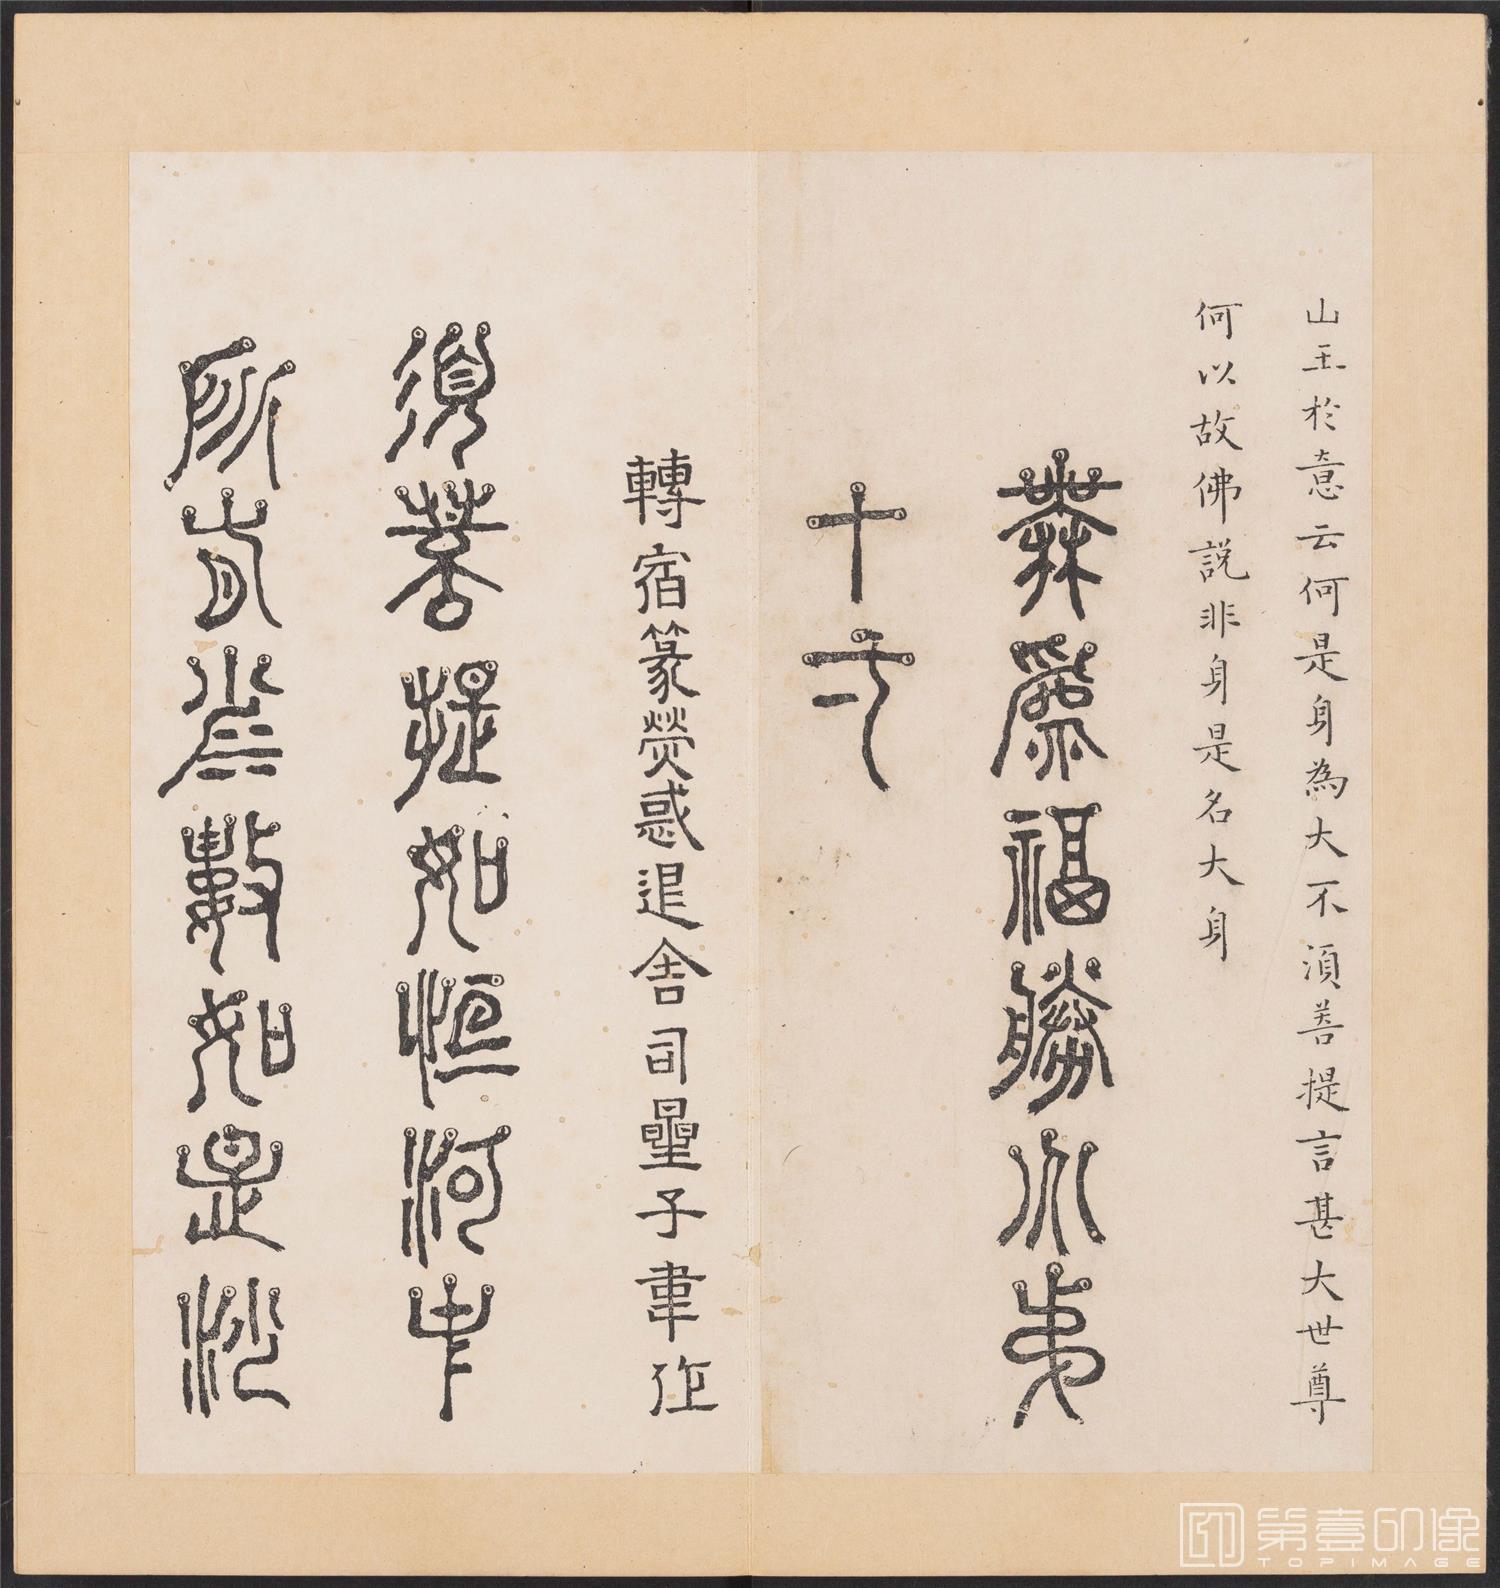 山王於意云何是身為大不湏菩提言甚大世尊
何以故佛説非身是名大身
無為福勝分弟
十一
轉宿篆熒惑退舍司星子韋作
須菩提如恒河中
所有沙數如是沙
第壹印像
TOPIMAGE